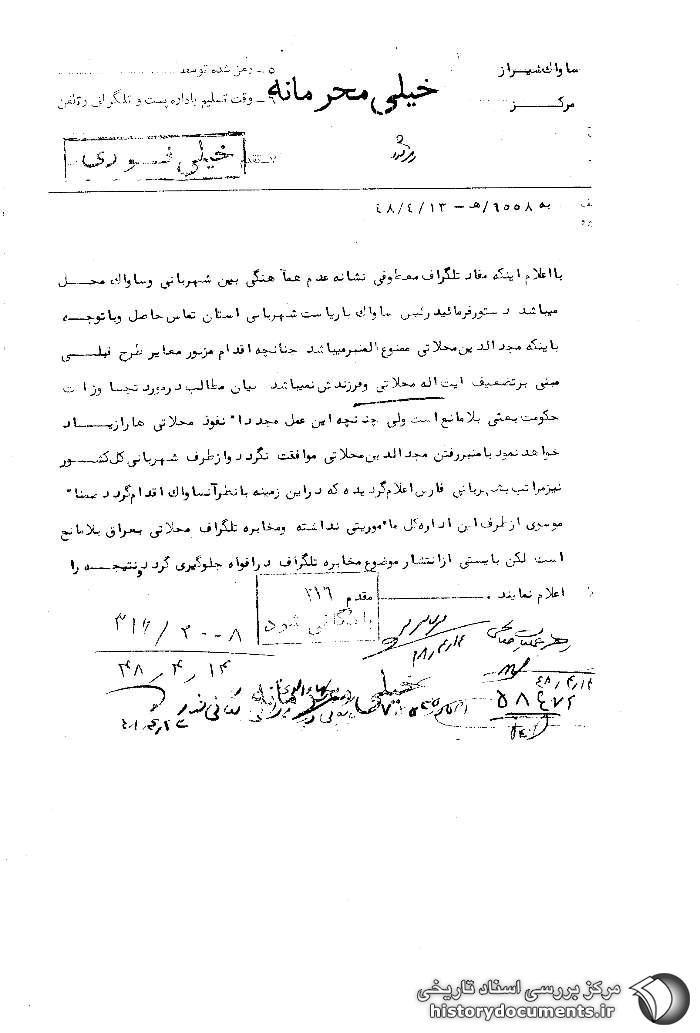 ساواك شيراز
مركز
۵ ـ رمز شده توسط
خیلی محرمانه
۶ ـ وقت تسليم باداره پست و تلگراف و تلفن
رمز شد
خیلی فوری
به ۶۵۵۸/هـ - ۴۸/۴/۱۳
با اعلام اینکه مفاد تلگراف معطوفی نشانه عدم هم‌آهنگی بین شهربانی وساواك محل
میباشد دستورفرمائید رئیس ساواك با ریاست شهربانی استان تماس حاصل وبا توجه
باینکه مجدالدین محلاتی ممنوع المنبر میباشد چنانچه اقدام مزبور مغایر طرح قبلی
مبنی بر تضعیف ایت اله محلاتی وفرزندش نمیباشد بیان مطالب در مورد تجاوزات
حکومت بعثی بلامانع است ولی چنانچه این عمل مجددا" نفوذ محلاتی ها را زیاد
خواهد نمود با منبر رفتن مجدالدین محلاتی موافقت نگردد واز طرف شهربانی کل کشور
نیز مراتب بشهربانی فارس اعلام گردیده که در این زمینه با نظر آنساواك اقدام گردد ضمنا"
موسوی از طرف این اداره کل ماموریتی نداشته ومخابره تلگراف محلاتی بعراق بلامانع
است لکن بایستی از انتشار موضوع مخابره تلگراف در افواه جلوگیری گردد ونتیجه را
اعلام نمایند . مقدم ۳۱۶
بایگانی شود
۳۱۶/۳۰۰۸
۴۸/۴/۱۴
۴۸/۴/۱۴
۵۸۴۷۲
خیلی محرمانه
مرکز بررسی اسناد تاریخی
historydocuments.ir